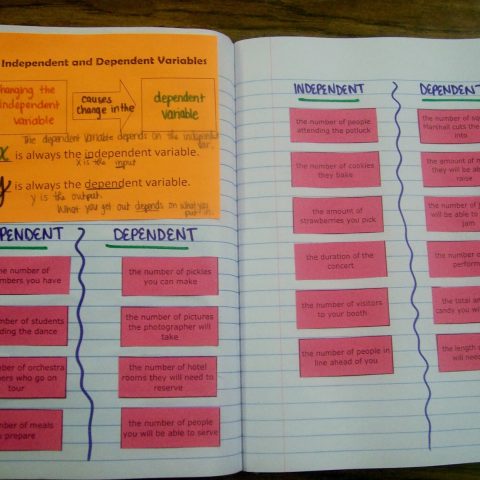 Independent and Dependent Variables
changing the
independent
variable
causes
change in the
dependent
variable
The dependent variable depends on the independent
var.
x is always the independent variable.
x is the input
y is always the dependent variable.
y is the output.
What you get out depends on what you
put in.
PENDENT
DEPENDENT
the number of
you have
the number of pickles
you can make
number of students
the dance
the number of pictures
the photographer will
take
number of orchestra
who go on
tour
the number of hotel
rooms they will need to
reserve
number of meals
prepare
the number of people
you will be able to serve
INDEPENDENT
DEPENDENT
the number of people
attending the potluck
the number of
Marshall cuts the
into
the number of cookies
they bake
the amount of
they will be able
raise
the amount of
strawberries you pick
the number of
will be able to
jam
the duration of the
concert
the number of
perform
the number of visitors
to your booth
the total
candy you will
the number of people in
line ahead of you
the length
will need